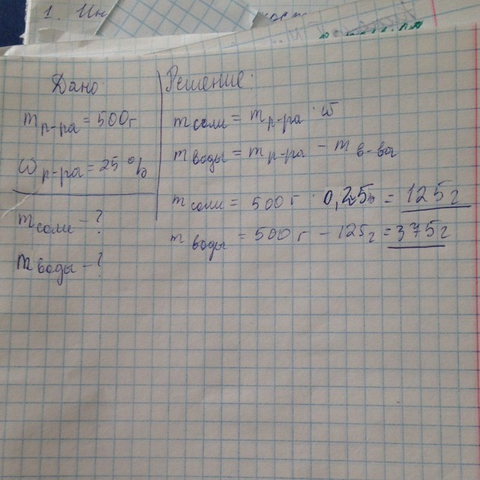 1. Ин
Дано
m р-ра = 500г
ω р-ра = 25 %
m соли - ?
m воды - ?
Решение.
m соли = m р-ра · ω
m воды = m р-ра - m в-ва
m соли = 500 г · 0,25 = 125 г
m воды = 500 г - 125 г = 375 г